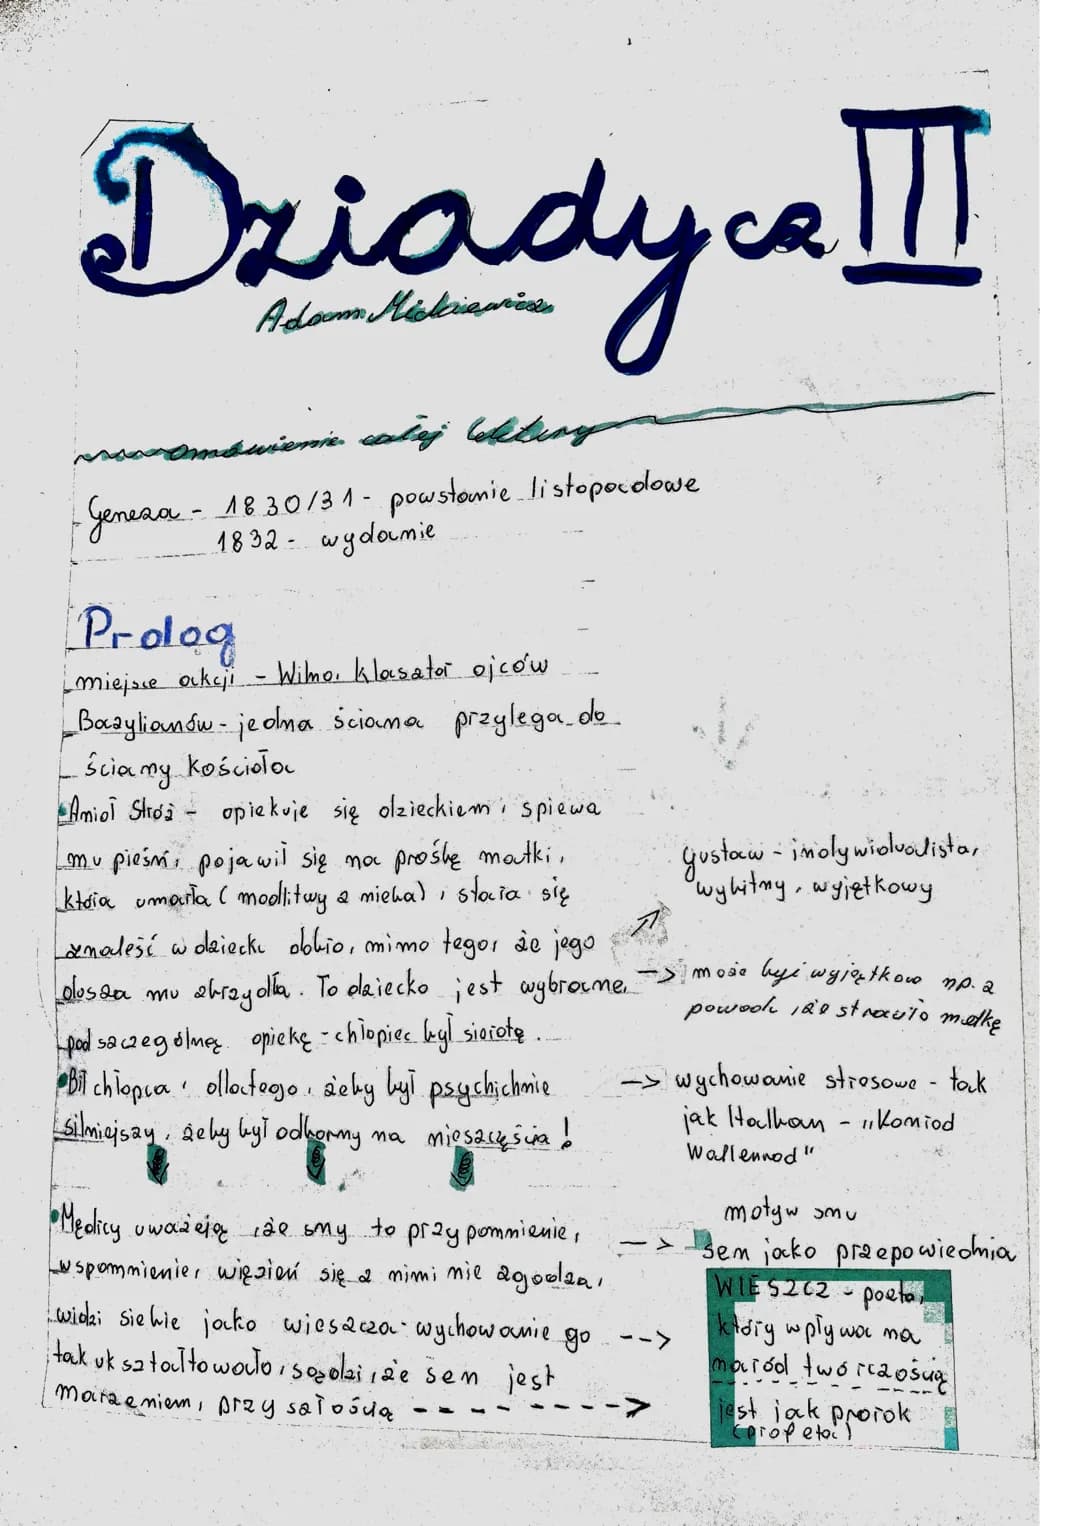 Dziady cz III
Adam Mickiewicz
omówienie całej lektury
Geneza - 1830/31 - powstanie listopadowe
1832 - wydanie
Prolog
miejsce akcji - Wilno, klasztor ojców
Bazylianów - jedna ściana przylega do
ściany kościoła
Anioł Stróż - opiekuje się dzieckiem, śpiewa
mu pieśni, pojawił się na prośbę matki,
która umarła (modlitwy z nieba), stara się
znaleść w dziecku dobro, mimo tego, że jego
dusza mu zbrzydła. To dziecko jest wybrane,
pod szczególną opieką - chłopiec był sierotą.
Bił chłopca, dlatego, żeby był psychicznie
silniejszy, żeby był odporny na nieszczęścia!
Mędlicy uważają, że sny to przypomnienie,
wspomnienie, więzień się z nimi nie zgadza,
widzi siebie jako wieszcza - wychowanie go
tak ukształtowało, sądzi, że sen jest
marzeniem, przyszłością
Gustaw - indywidualista,
wybitny, wyjątkowy
może być wyjątkowy np. z
powodu, że straciło matkę
wychowanie stresowe - tak
jak Halban - "Konrad
Wallenrod"
motyw snu
sen jako przepowiednia
WIESZCZ - poeta,
który wpływa na
naród twórczością
jest jak prorok
(profeta)